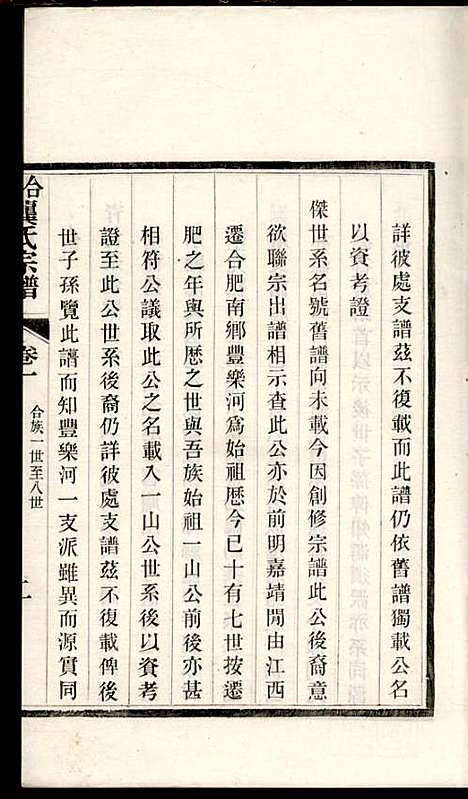 詳彼處支譜茲不復載而此譜仍依舊譜獨載公名
以資考證
傑世系名號舊譜向未載今因創修宗譜此公後裔意
欲聯宗出譜相示查此公亦於前明嘉靖閒由江西
遷合肥南鄉豐樂河爲始祖歷今已十有七世按遷
肥之年與所歷之世與吾族始祖一山公前後亦甚
相符公議取此公之名載入一山公世系後以資考
證至此公世系後裔仍詳彼處支譜茲不復載俾後
世子孫覽此譜而知豐樂河一支派雖異而源實同
龔氏宗譜
卷一
合族一世至八世